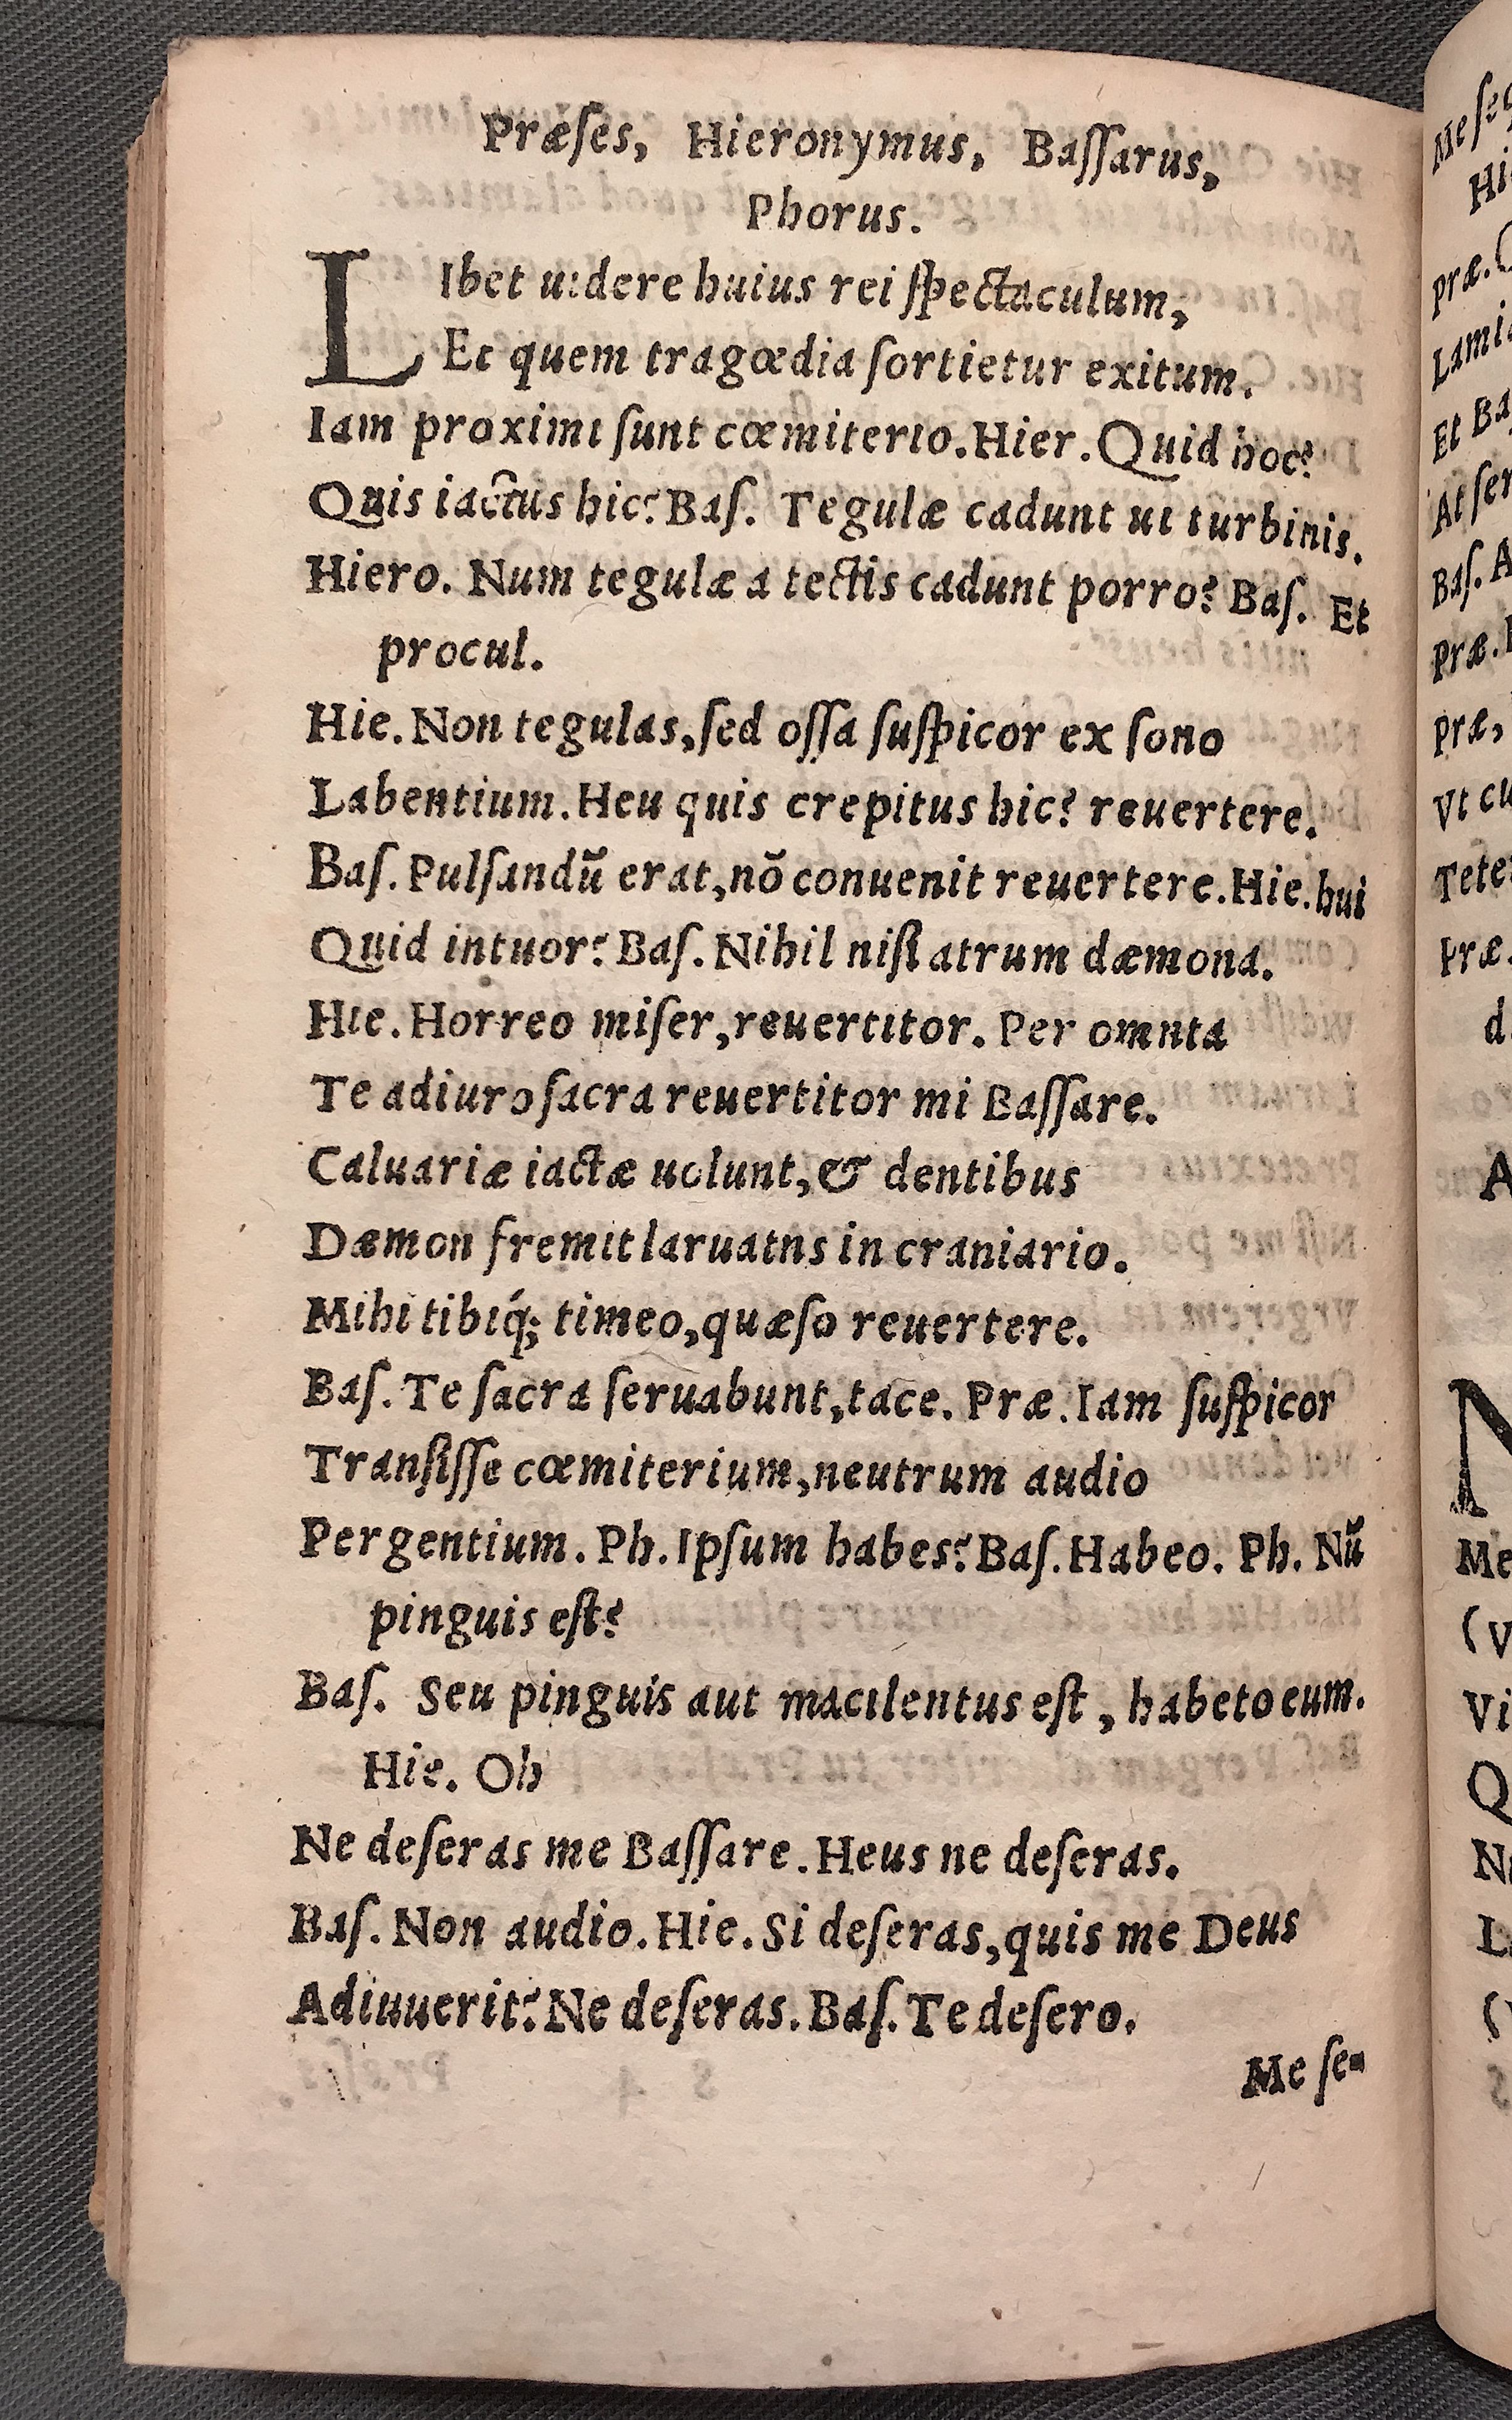 Præſes, Hieronymus, Baſſarus,
Phorus.
LIbet uidere huius rei ſpectaculum,
Et quem tragœdia ſortietur exitum.
Iam proximi ſunt cœmiterio. Hier. Quid hoc?
Quis iactus hic? Baſ. Tegulæ cadunt ui turbinis.
Hiero. Num tegulæ a tectis cadunt porro? Baſ. Et
procul.
Hie. Non tegulas, ſed oſſa ſuſpicor ex ſono
Labentium. Heu quis crepitus hic? reuertere.
Baſ. Pulſandũ erat, nõ conuenit reuertere. Hie. hui
Quid intuor? Baſ. Nihil niſi atrum dæmona.
Hie. Horreo miſer, reuertitor. Per omnia
Te adiuro ſacra reuertitor mi Baſſare.
Caluariæ iactæ uolunt, & dentibus
Dæmon fremit laruatns in craniario.
Mihi tibiq́; timeo, quæſo reuertere.
Baſ. Te ſacra ſeruabunt, tace. Præ. Iam ſuſpicor
Tranſiſſe cœmiterium, neutrum audio
Pergentium. Ph. Ipſum habes? Baſ. Habeo. Ph. Nũ
pinguis eſt?
Baſ. Seu pinguis aut macilentus eſt, habeto eum.
Hie. Oh
Ne deſeras me Baſſare. Heus ne deſeras.
Baſ. Non audio. Hie. Si deſeras, quis me Deus
Adiuuerit? Ne deſeras. Baſ. Te deſero.
Me ſe-